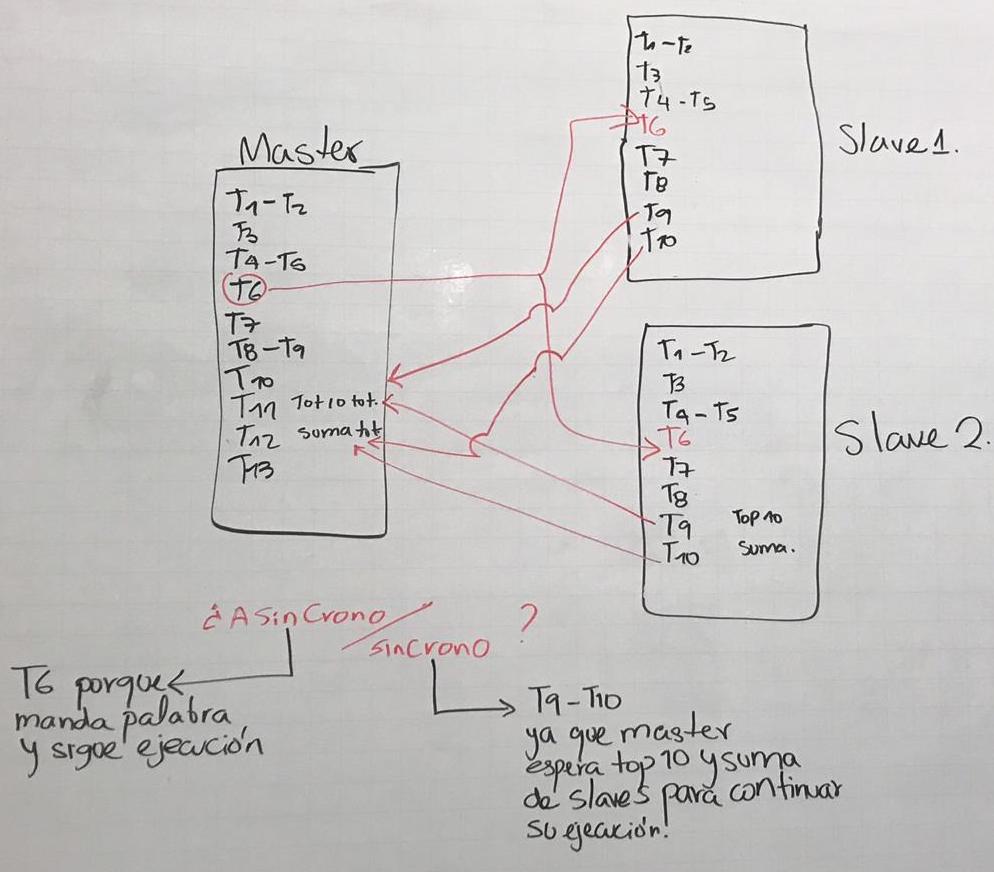 Master
T1-T2
T3
T4-T5
T6
T7
T8-T9
T10
T11 Tot 10 tot.
T12 suma tot
T13
T1-T2
T3
T4-T5
T6
T7
T8
T9
T10
Slave 1.
T1-T2
T3
T4-T5
T6
T7
T8
T9 Top 10
T10 Suma.
Slave 2.
¿ASinCrono/sinCrono?
T6 porque
manda palabra
y sigue ejecución
T9-T10
ya que master
espera top 10 y suma
de slaves para continuar
su ejecución!